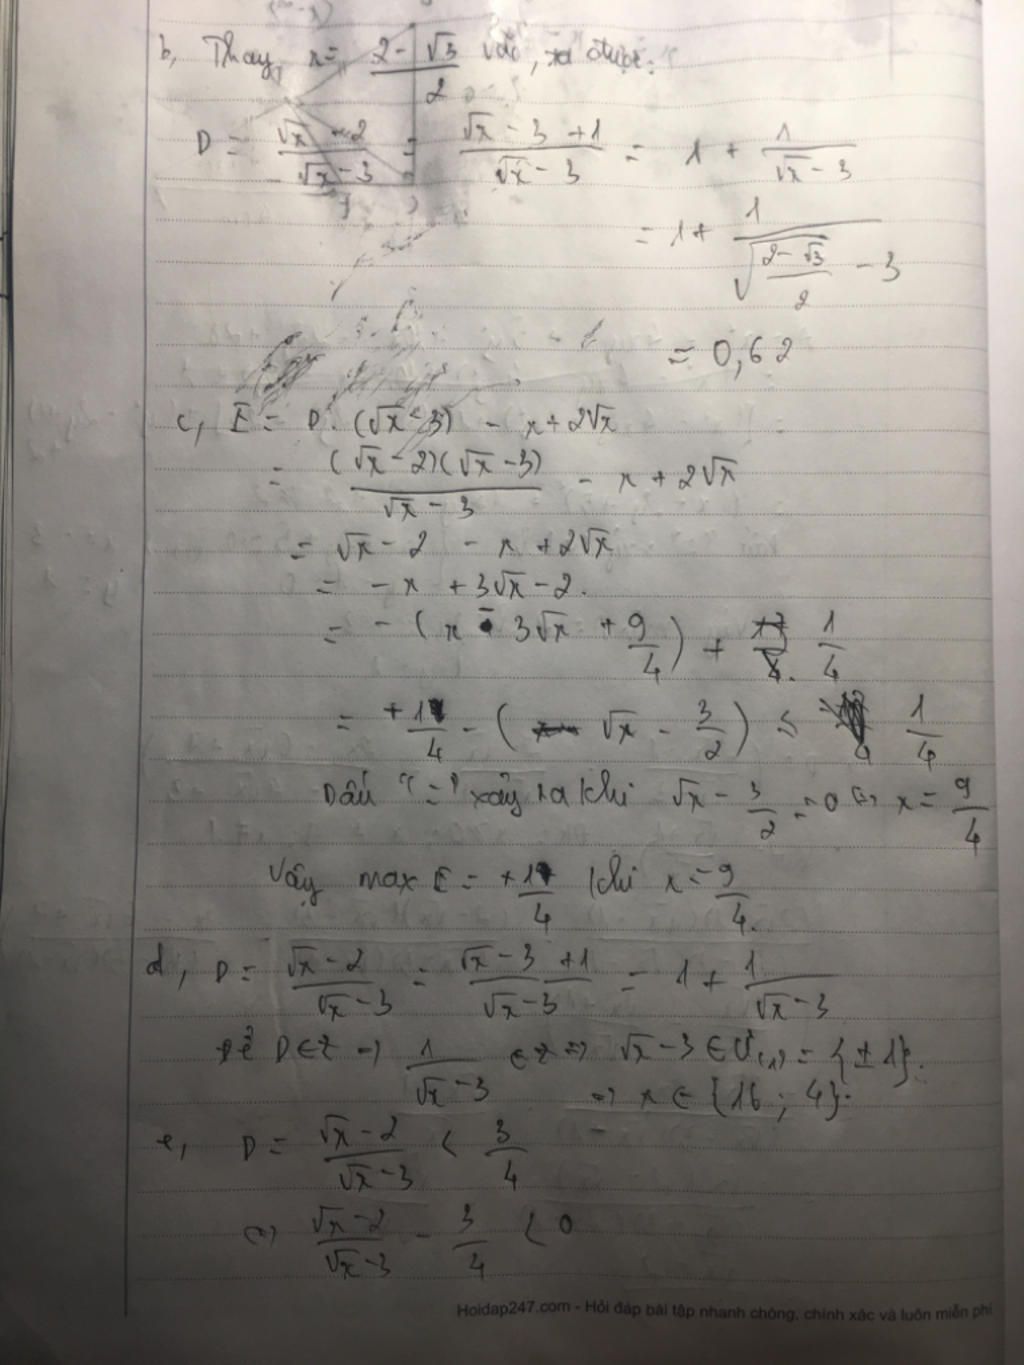 b, Thay x = (2 - √3)/2 vào, ta được:
D = (√x - 2)/(√x - 3) = (√x - 3 + 1)/(√x - 3) = 1 + 1/(√x - 3)
= 1 + 1/(√((2 - √3)/2) - 3)
= 0,62
c, E = D. (√x - 3) - x + 2√x
= (√x - 2)(√x - 3)/(√x - 3) - x + 2√x
= √x - 2 - x + 2√x
= - x + 3√x - 2.
= - (x - 3√x + 9/4) + 1/4
= +1/4 - (√x - 3/2) ≤ 1/4
Dấu "=" xảy ra khi √x - 3/2 = 0 <=> x = 9/4
Vậy max E = +1/4 khi x = 9/4.
d, D = (√x - 2)/(√x - 3) = (√x - 3 + 1)/(√x - 3) = 1 + 1/(√x - 3)
Để D ∈ Z => 1/(√x - 3) ∈ Z => √x - 3 ∈ Ư(1) = {±1}.
=> x ∈ {16; 4}.
e, D = (√x - 2)/(√x - 3) < 3/4
<=> (√x - 2)/(√x - 3) - 3/4 < 0
Hoidap247.com - Hỏi đáp bài tập nhanh chóng, chính xác và luôn miễn phí